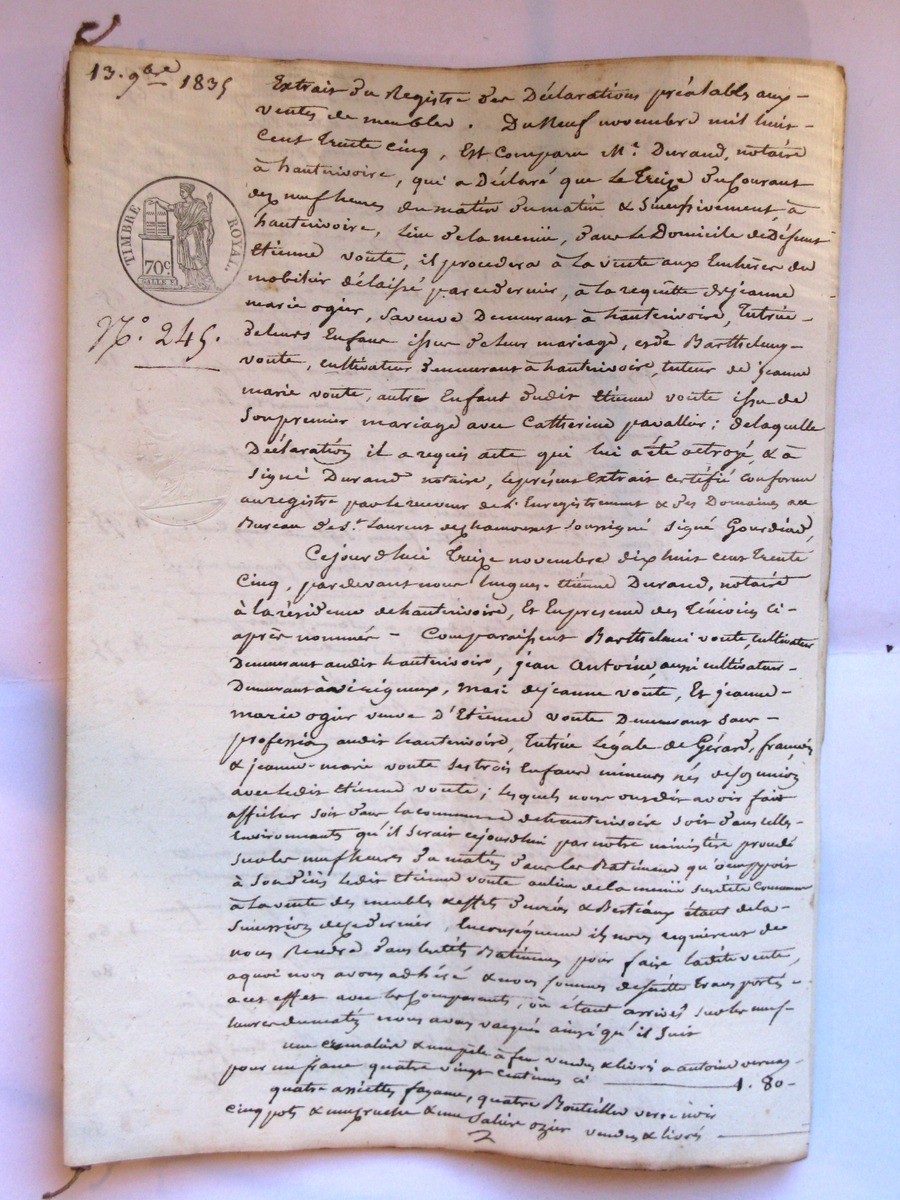 13. 9bre 1835
TIMBRE ROYAL
70c
N° 245.
Extrait du Registre des Déclarations préalables aux
ventes de meubles. Du Neuf novembre mil huit
Cent Trente Cinq, Est Comparu Mr. Durand, notaire
à hauterivoire, qui a Déclaré que le Treize du Courant
dez neuf heures du matin du matin & successivement, à
hauterivoire, lieu de la menue, dans le Domicile de Défunt
Etienne voute, il procedera à la vente aux Enchères du
mobilier délaissé par ce dernier, à la requête de jeanne
marie ogier, sa veuve Demeurant à hauterivoire, Tutrice
de leurs Enfans issus de leur mariage, et de Barthelemy
voute, cultivateur demeurant à hauterivoire, tuteur de jeanne
marie voute, autre Enfant dudit Etienne voute issu de
son premier mariage avec Catherine pavallier; de laquelle
Déclaration il a requis acte qui lui a été octroyé, & a
signé Durand notaire, le présent extrait certifié conforme
au registre par le receveur de l'Enregistrement & des Domaines au
Bureau de St. Laurent de chamousset soussigné signé Gourdiad,
Cejourd'hui Treize novembre dix huit cent trente
Cinq, pardevant nous hugues-etienne Durand, notaire
à la résidence de hauterivoire, Et En presence des Témoins ci-
après nommés - Comparaissent Barthelemi voute, cultivateur
Demeurant audit hauterivoire, jean Antoine, aussi cultivateur
Demeurant à virigneux, mari de jeanne voute, Et jeanne-
marie ogier veuve D'Etienne voute Demeurant sans
profession audit hauterivoire, Tutrice légale de Gérard, françois
& jeanne-marie voute ses trois Enfans mineurs nés de son union
avec ledit Etienne voute; lesquels nous ont dit avoir fait
afficher soit dans la commune de hauterivoire soit dans celles
Environnantes qu'il serait cejourdhui par notre ministère procédé
sur les neuf heures du matin dans les Batimens qu'occuppoit
à son décès ledit Etienne voute au lieu de la menue susdite Commune
à la vente des meubles & effets denrées & Bestiaux étant de la
succession de ce dernier, En conséquence ils nous requièrent de
nous Rendre dans lesdits Batimens pour faire ladite vente,
a quoi nous avons adhéré & nous sommes de suitte transportés
a cet effet avec les Comparants, où étant arrivés sur les neuf
heures du matin nous avons vacqués ainsi qu'il suit
une cremalière & une pèle à feu vendus & livrés a antoine
pour un franc quatre vingt centimes ci 1. 80
quatre assiettes fayance, quatre Bouteilles verre noir
Cinq pots & une cruche & une salière ozier vendus & livrés